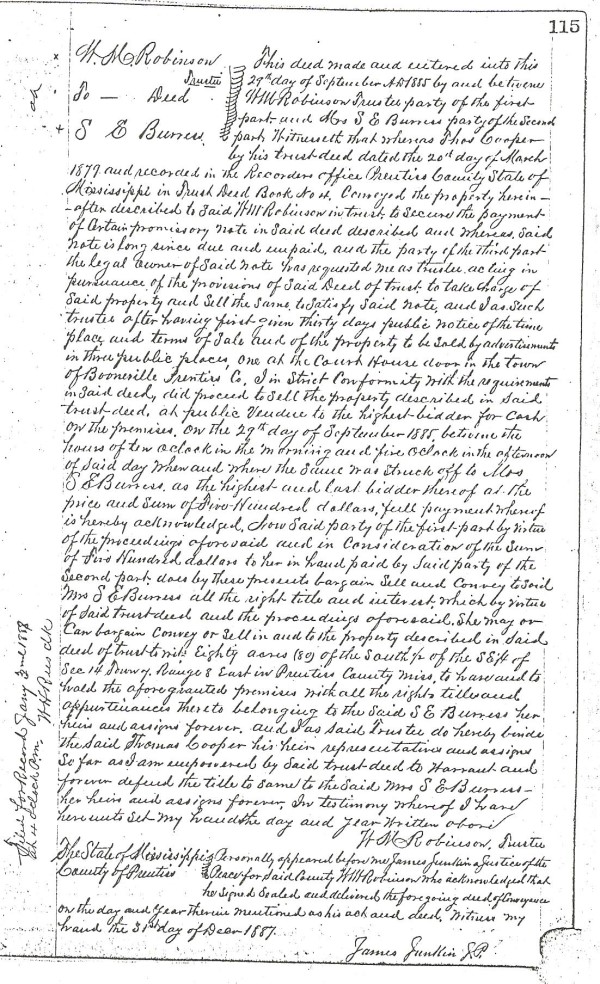 115
W. M. Robinson
Trustee
To — Deed
S E Burress
This deed made and entered into this
29th day of September AD 1885 by and betwene
W M Robinson Trustee party of the first
part and Mrs S E Burress party of the Second
part, Witnesseth that whereas Thos Cooper
by his trust deed dated the 20th day of March
1879 and recorded in the Recorders office Prentiss County State of
Mississippi in Trust Deed Book No 4. Conveyed the property herein-
-after described to Said W M Robinson in trust to Secure the payment
of Certain promissory note in Said deed described and whereas, Said
note is long since due and unpaid, and the party of the third part
the legal owner of Said note has requested me as trustee, acting in
pursuance of the provisions of Said Deed of trust. to take charge of
Said property and Sell the Same, to Satisfy Said note, and I as Such
trustee after having first given thirty days public notice of the time
place, and terms of Sale and of the property to be Sold by advertisement
in three public places, one at the Court House door in the town
of Booneville Prentiss Co, I in Strict Conformity with the requirements
in Said deed, did proceed to Sell the property described in Said
trust deed, at public Vendue to the highest bidder for Cash
on the premises. On the 29th day of September 1885, betwene the
hours of ten oclock in the morning and five oclock in the afternoon
of Said day when and where the Same was Struck off to Mrs
S E Burress. as the highest and last bidder thereof at the
price and Sum of Five Hundred dollars, full payment whereof
is hereby acknowledged, Now Said party of the first part by Virtue
of the proceedings aforesaid and in Consideration of the Sum
of Five Hundred dollars to her in hand paid by Said party of the
Second part. does by these presents bargain Sell and Convey to Said
Mrs S E Burress all the right title and interest, which by virtue
of Said trust deed and the proceedings aforesaid. She may or
Can bargain Convey or Sell in and to the property described in Said
deed of trust to wit: Eighty acres (80) of the South ½ of the SE¼ of
Sec 14 Town 7. Range 8 East in Prentiss County Miss, to have and to
hold the aforegranted premises with all the rights titles and
appurtinances thereto belonging to the Said S E Burress her
heirs and assigns forever. and I as Said Trustee do hereby binde
the Said Thomas Cooper his heir representatives and assigns
So far as I am empowered by Said trust deed to Warrant and
forever defend the title to same to the Said Mrs S E Burress-
her heirs and assigns forever, In testimony whereof I have
hereunto Set my hand the day and year written above
W M Robinson, Trustee
The State of Mississippi
County of Prentiss
Personally appeared before me James Junkin a Justice of the
Peace for Said County W M Robinson who acknowledged that
he Signed Sealed and delivered the foregoing deed of Conveyance
on the day and Year therein mentioned as his act and deed. Witness my
hand the 31st day of Decr 1887.
James Junkin J.P.
Filed for Record Jany 2nd 1888
at 4 oclock P.m.